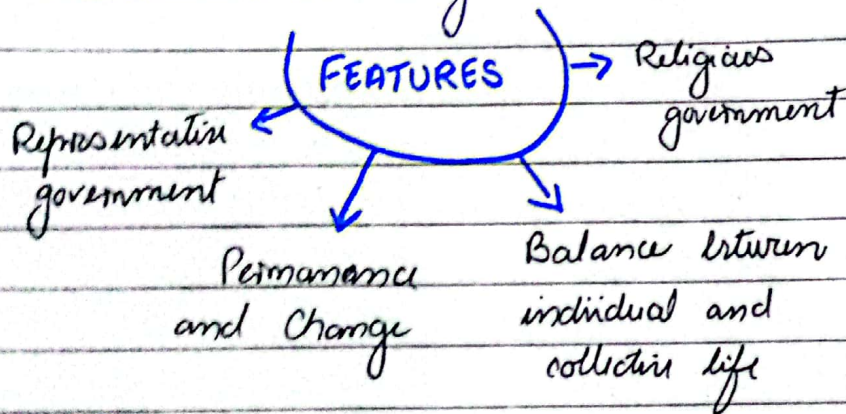 FEATURES
Religious
government
Representative
government
Permanance
and Change
Balance between
individual and
collective life